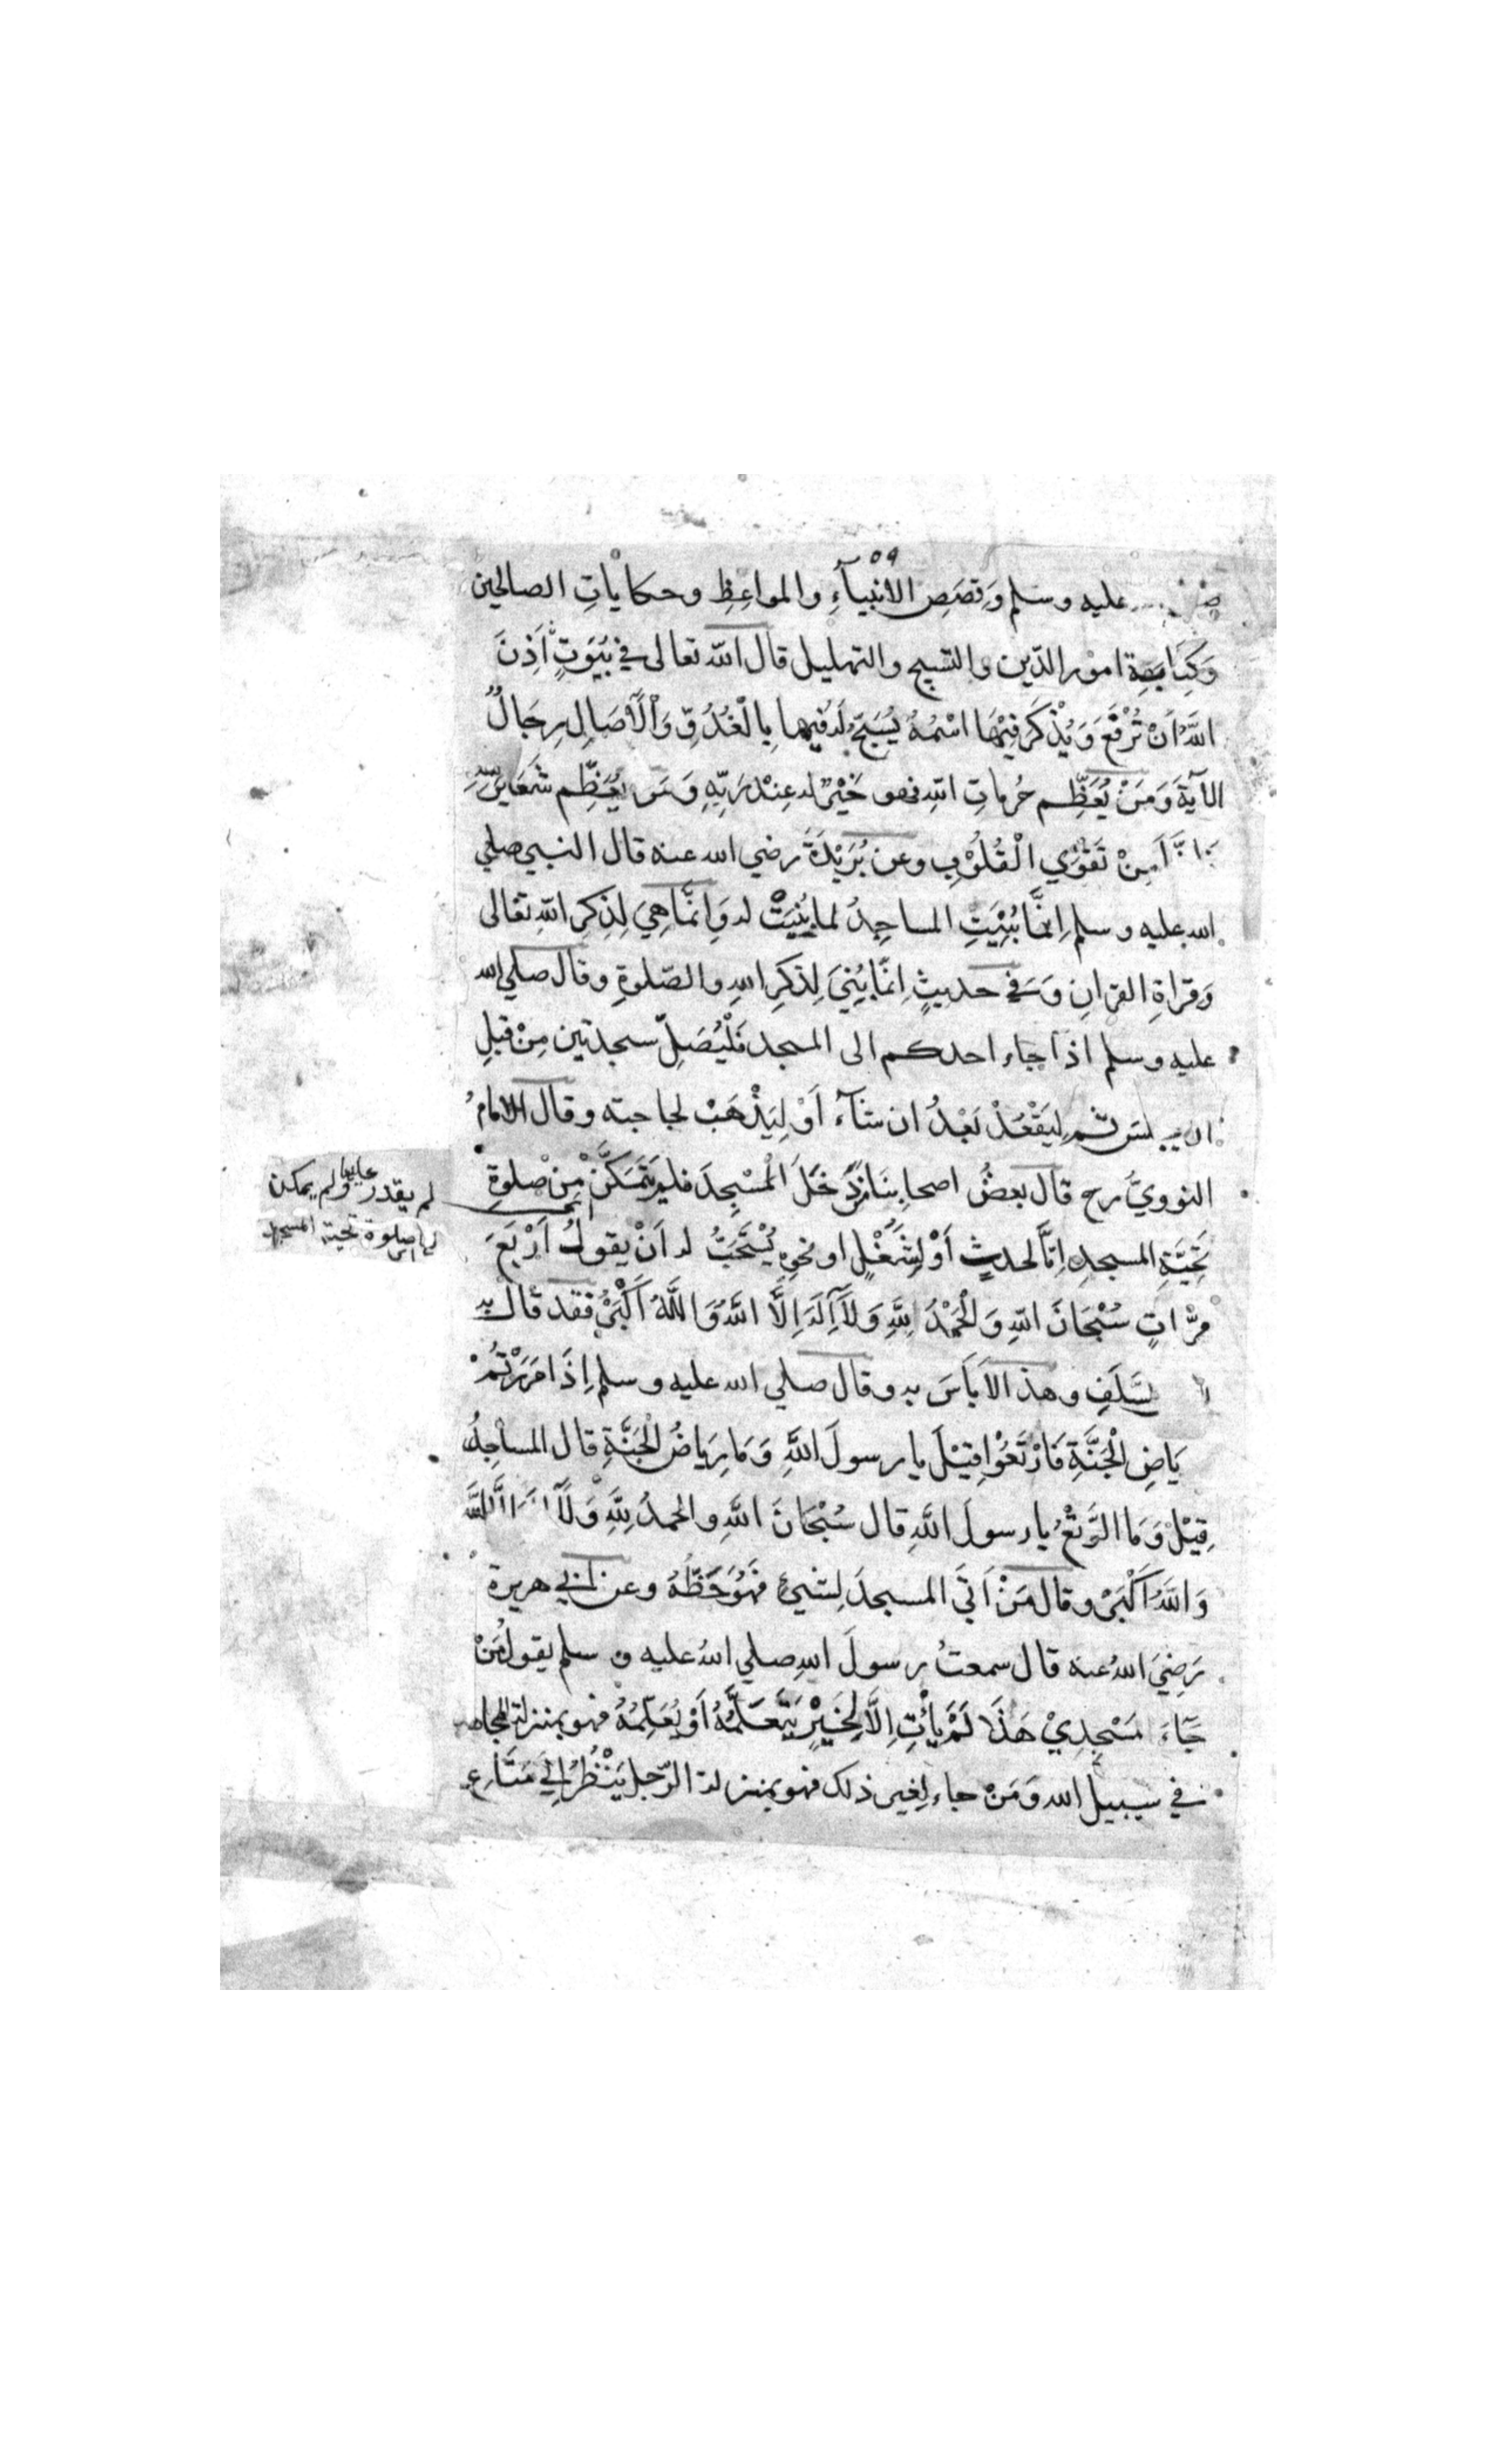 ٥٩
عليه وسلم وَقِصَصِ الْاَنْبِيآءِ والمواعِظِ وحكاياتِ الصالحين
وَكِتَابَةِ امور الدّين والتسبيح والتهليل قال اللّه تعالى في بُيُوتٍ اَذِنَ
اللّهُ اَنْ تُرْفَعَ وَيُذْكَرَ فِيْهَا اسْمُهُ يُسَبِّحُ لَهُ فِيها بِالْغُدُوِّ وَالْآصَالِ رِجَالٌ
الآيةَ وَمَنْ يُعَظِّم حُرماتِ اللّهِ فهو خَيْرٌ له عِنْدَ رَبِّهِ وَمَن يُعَظِّم شَعَايِرَ
مِنْ تَقْوَي الْقُلُوْبِ وعن بُرَيْدَةَ رضي الله عنه قال النبي صلي
الله عليه وسلم اِنَّمَا بُنِيَتِ المساجِدُ لما بُنِيَتْ له وَاِنَّمَا هِيَ لِذِكِرِ اللّهِ تعالى
وَقراةِ القران وَفي حديثٍ اِنَّمَا بُنِيَ لِذكرِ اللهِ والصّلوةِ وقال صلي الله
عليه وسلم اذا جاء احدكم الى المسجد فَلْيُصَلِّ سجدتين مِنْ قبلِ
ان يجلس ثم لِيَقْعُدْ بَعْدُ ان شآءَ اَوْ لِيَذْهَبْ لحاجته وقال الامامُ
النوويّ رح قال بعضُ اصحابِنَا مَنْ دَخَلَ الْمَسْجِدَ فلم يَتَمَكَّنْ مِنْ صلوةِ
لم يقدر عليها ولم يمكن
لها صلوة تحية المسجد
تَحِيَّةِ المسجدِ اِمَّا لحدثٍ اَوْ لِشُغْلٍ او نحوِه يُسْتَحَبُّ له اَنْ يقولَ اَرْبَعَ
مرَّاتٍ سُبْحَانَ اللّهِ وَالْحَمْدُ لِلّهِ وَلَآ اِلَهَ اِلَّا اللّهُ وَاللَّهُ اَكْبَرُ فقد قال به
السَّلَفِ وهذا لاَ بَاَسَ به وقال صلي الله عليه وسلم اِذَا مَرَرْتُمْ
يَاضِ الْجَنَّةِ فَارْتَعُوْا قِيْلَ يا رسولَ اللَّهِ وَمَا رِيَاضُ الْجَنَّةِ قال المساجِدُ
قِيْلْ وَمَا الرَّتْعُ يا رسولَ اللَّهِ قال سُبْحَانَ اللَّهِ والحمدُ لِلَّهِ وَلَآ اِلَهَ اِلَّا اللَّهُ
وَاللَّهُ اَكْبَرُ وقال مَنْ اَتَي المسجدَ لِشيئٍ فَهُوَ حَظُّهُ وعن ابي هريرة
رَضِيَ اللهُ عنه قال سمعتُ رسولَ اللهِ صلي اللهُ عليه و سلم يقولُ مَنْ
جَآءَ مَسْجِدِيْ هَذَا لَمْ يَأْتِ اِلَّا لِخَيْرٍ يَتَعَلَّمُهُ اَوْ يُعَلِّمُهُ فهو بمنزلة المجاهد
في سبيل الله وَمَنْ جاء لِغير ذلك فهو بمنزلة الرّجل يَنْظُرُ اِلَي مَتَاعِ